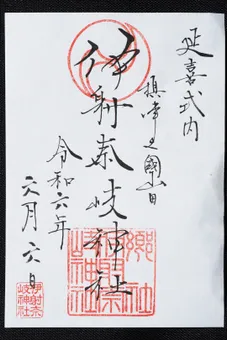 延喜式内
摂津之國山田
伊射奈岐神社
令和六年
六月六日
郷社
伊射奈岐神社
伊射奈岐神社